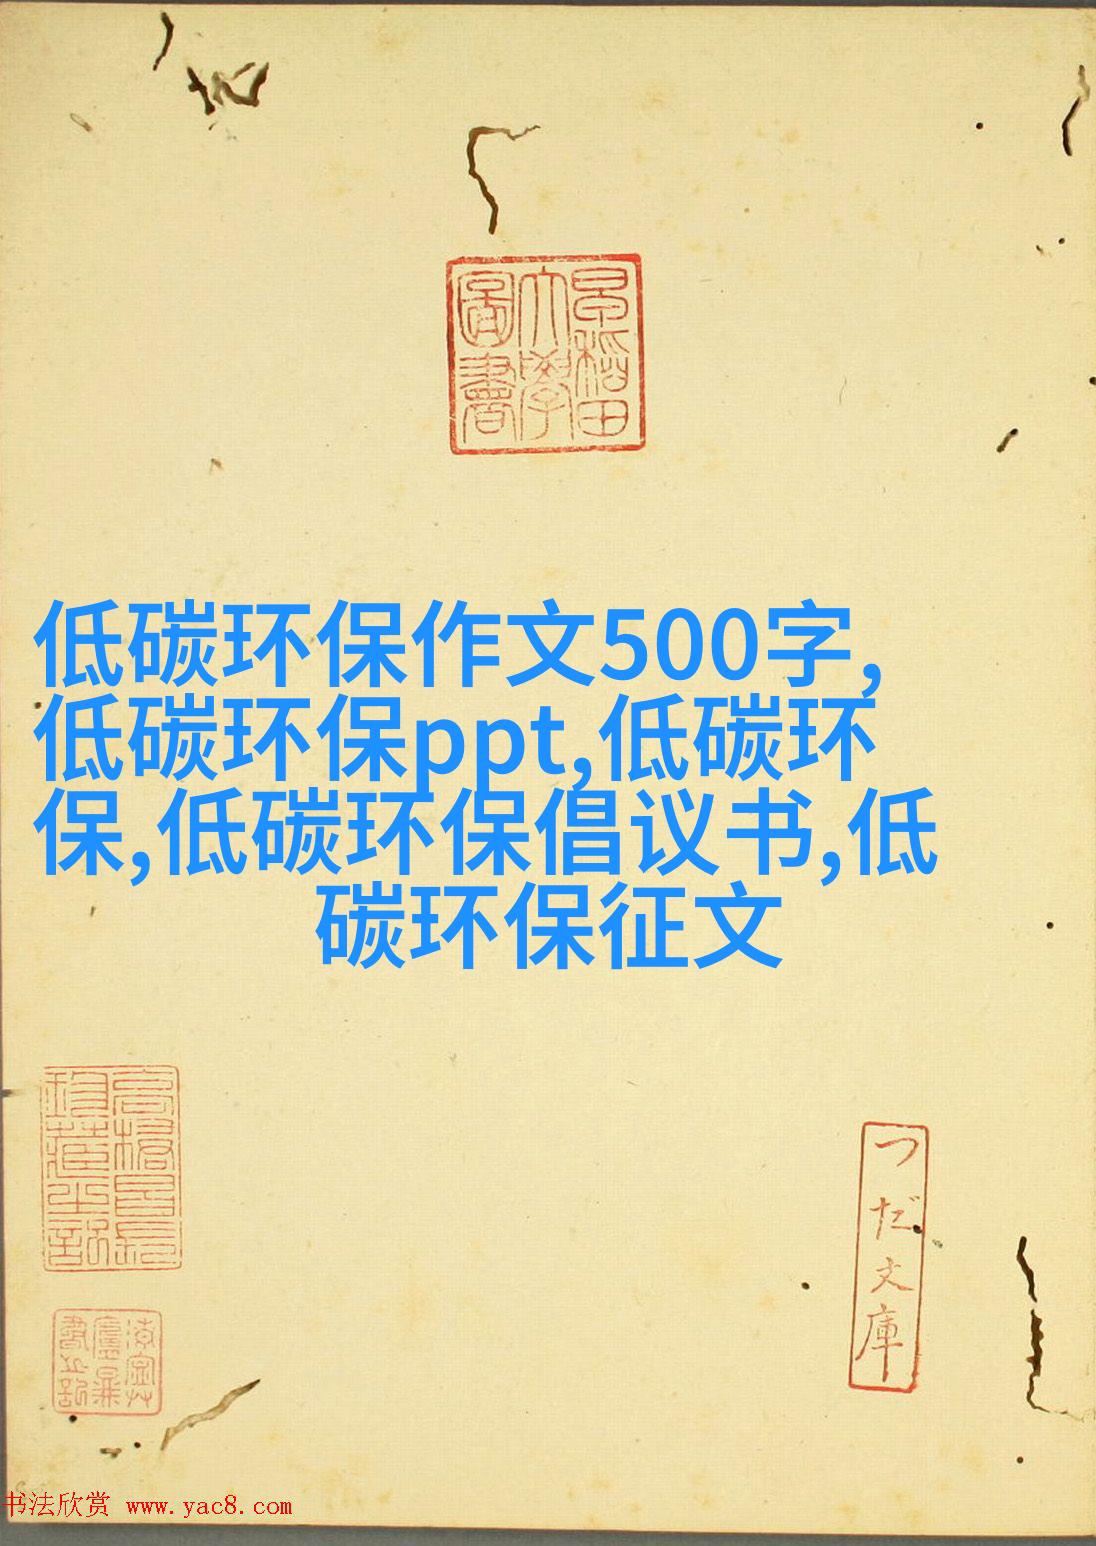 早稲田
大學
圖書
低碳环保作文500字,
低碳环保ppt,低碳环
保,低碳环保倡议书,低
碳环保征文
つだ文庫
书法欣赏 www.yac8.com